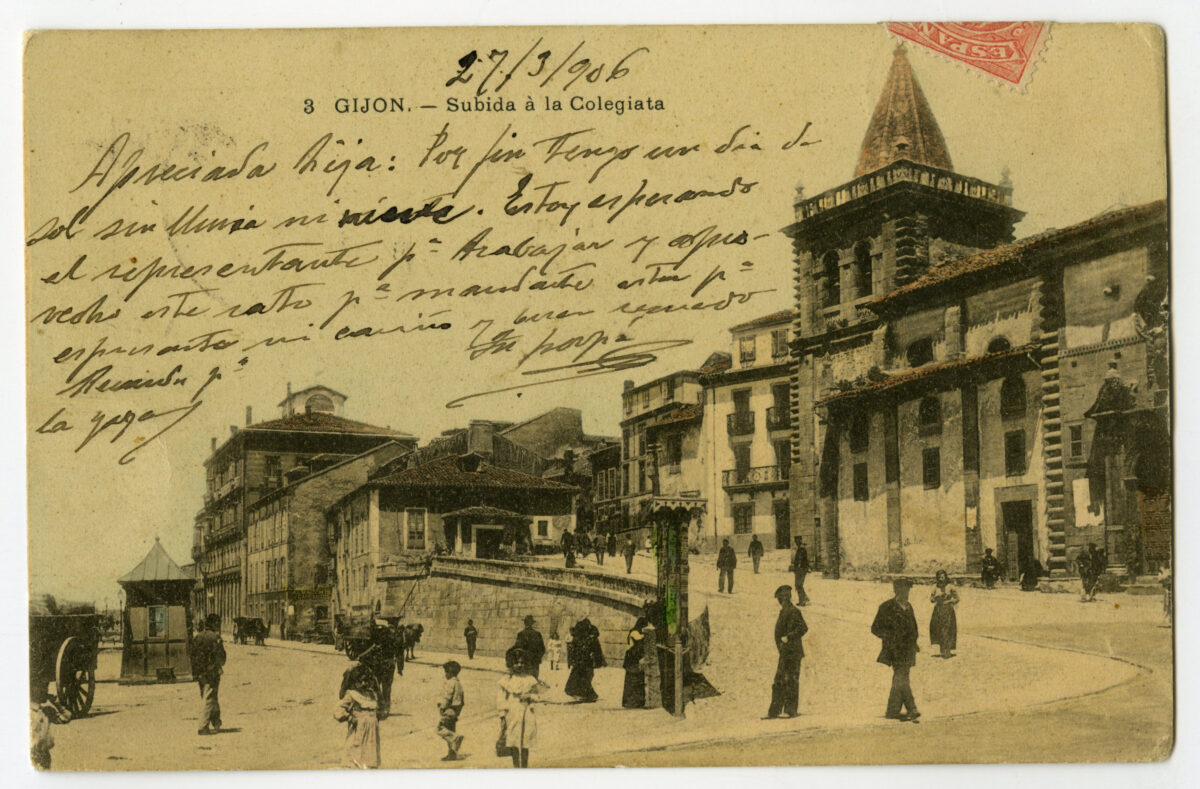 27/3/906
3 GIJON. — Subida à la Colegiata
ESPAÑ
Apreciada hija: Por fin Tengo un dia de
sol sin lluvia ni nieve. Estoy esperando
el representante pª Trabajar y apro-
vecho este rato pª mandarte esta pª
espresarte mi cariño y buen recuerdo
Tu papa
Recuerdos pª
la yaya